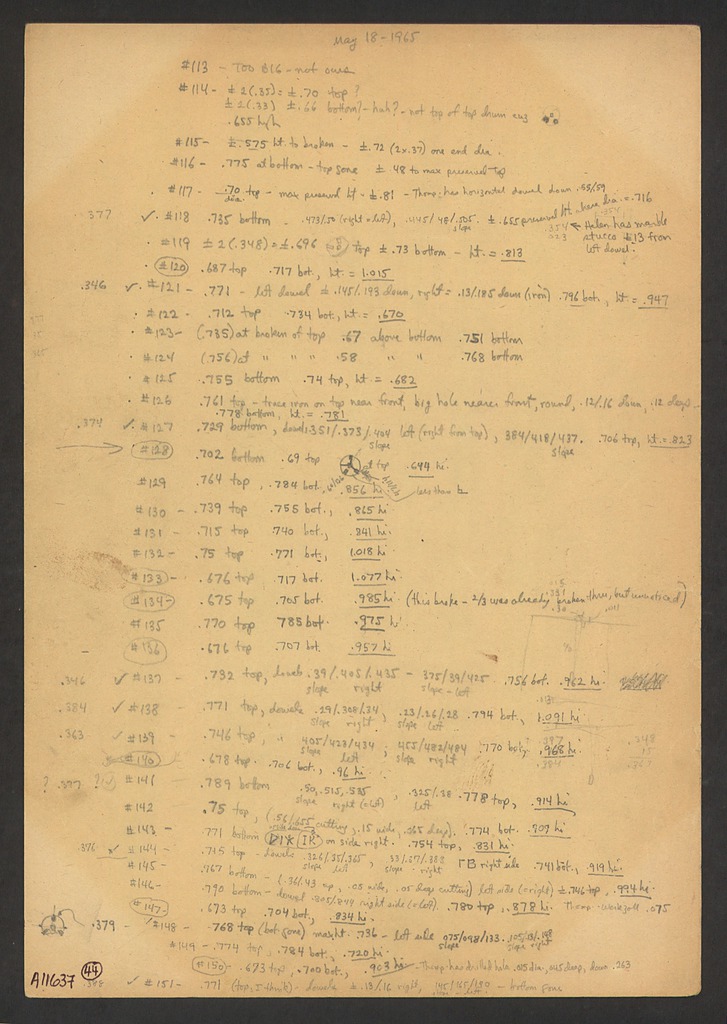 May 18-1965
#113 - TOO BIG - not ours
#114 - ± 2(.35) = ± .70 top?
± 2(.33) ± .66 bottom? - huh? - not top of top drum
.655 high
#115 - ± .575 ht. to broken - ± .72 (2x.37) one end dia.
#116 - .775 at bottom - top gone ± 48 to max preserved top
#117 - .70 top - max preserved ht - ± .81 - Thomp. has horizontal dowel down .55/59
dia
.377 ✓ #118 .735 bottom - .473/50 (right = left), .445/48/.505 ± .655 preserved ht. where dia. = .716
slope
Helen has marble
stucco #13 from
left dowel.
#119 ± 2 (.348) = ± .696 top ± .73 bottom - ht. = .813
#120 .687 top .717 bot., ht = 1.015
.346 ✓ #121 - .771 - left dowel ± .145/.193 down, right = .13/.185 down (iron) .796 bot., ht = .947
#122 - .712 top .734 bot., ht. = .670
#123 - (.735) at broken of top .67 above bottom .751 bottom
#124 (.756) at " " " .58 " " .768 bottom
#125 .755 bottom .74 top, ht. = .682
#126 .761 top - trace iron on top near front, big hole nearer front, round, .12/.16 down, .12 deep
.778 bottom, ht. = .781
.374 ✓ #127 .729 bottom, dowel .351/.373/.404 left (right from top), 384/418/437. .706 top, ht. = .823
slope slope
#128 .702 bottom .69 top at top .694 hi.
#129 .764 top, .784 bot. .856 hi less than
#130 - .739 top .755 bot., .865 hi
#131 - .715 top .740 bot., .841 hi.
#132 - .75 top .771 bot., 1.018 hi.
#133 - .676 top .717 bot. 1.077 hi.
#134 - .675 top .705 bot. .985 hi. (this broke - 2/3 was already broken thru, but unnoticed)
#135 .770 top 785 bot. .975 hi
#136 .676 top .707 bot. .957 hi
.346 ✓ #137 - .732 top, dowels .39/.405/.435 - 375/39/425 .756 bot. .962 hi.
slope right slope - left
.384 ✓ #138 - .771 top, dowels .29/.308/.34 .23/.26/.28 .794 bot., 1.091 hi.
slope right slope left
.363 ✓ #139 - .746 top, " 405/423/434, 455/482/484 .770 bot., .968 hi.
slope left slope right
#140 - .678 top .706 bot., .96 hi.
? .377 ? #141 .789 bottom .50, .515, .535 , .325/.38 .778 top, .914 hi
slope right (= left) left
#142 .75 top, (.56/.655 cutting, .15 wide, .065 deep). .774 bot. .709 hi.
#143 - .771 bottom on side right. .754 top, .831 hi.
.376 #144 - .715 top - dowels .326/35/.365 33/.37/.382 ΓB right side .741 bot., .919 hi.
slope left slope right
#145 - .767 bottom - (.36/.43 up, .05 wide, .05 deep cutting) left side (= right) ± .746 top, .994 hi.
#146 - .790 bottom - dowel right side (= left). .780 top, .878 hi.
#147 - .673 top .704 bot., .834 hi. .075
.379 - #148 - .768 top (bot. gone) max ht. .736 - left side 075/098/133
slope slope right
#149 - .774 top, .784 bot., .720 hi.
#150 - .673 top, .700 bot., .903 hi - Thomp. has drilled hole .015 dia, .045 deep, down .263
✓ #151 - .771 (top, I think) - dowels ± .13/.16 right, left - bottom gone
A11637 (44)